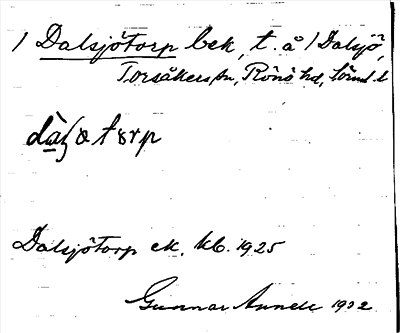 1 Dalsjötorp bek, t. å 1 Dalsjö,
Torsåkers sn, Rönö hd, Sörml. l
Dalsjötorp ek. kb. 1925
Gunnar Annell 1932